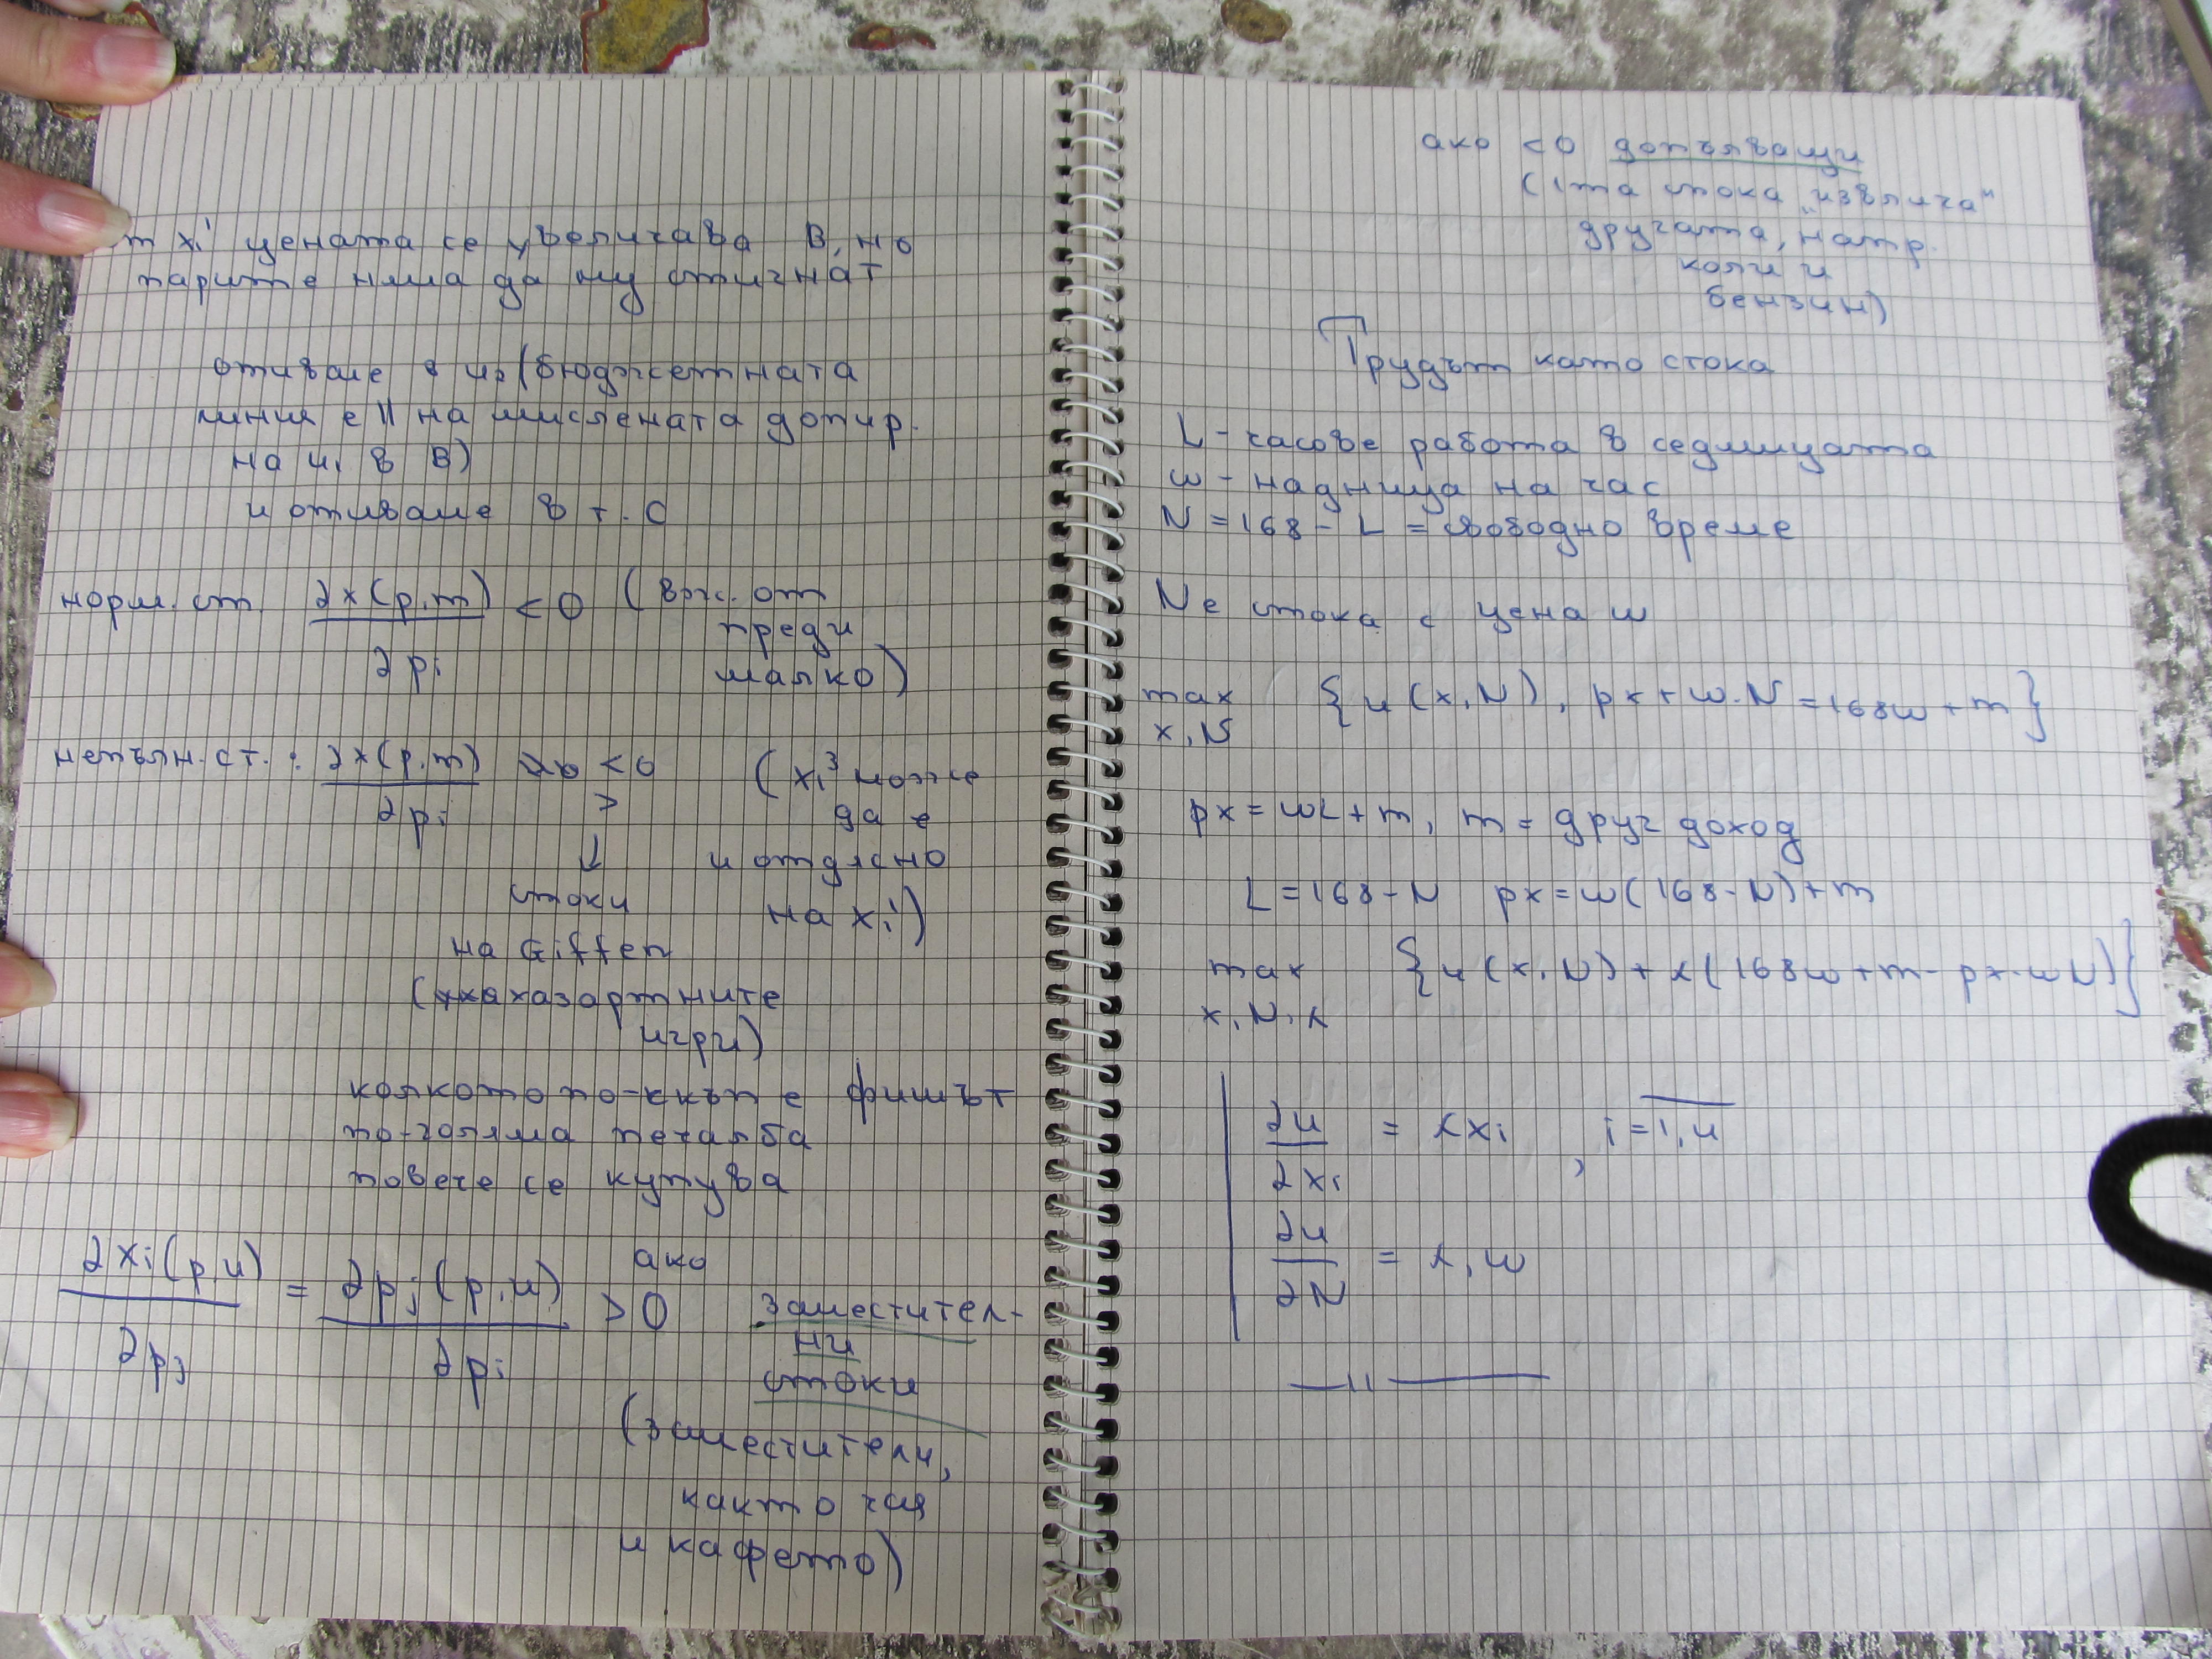 т x₁' цената се увеличава B, но
парите няма да му стигнат
отиваме в u₂ (бюджетната
линия е || на мислената допир.
на u₁ в B)
и отиваме в т. C
норм. ст. ∂x(p,m)/∂pᵢ < 0 (вж. от
преди
малко)
непълн. ст.: ∂x(p,m)/∂pᵢ < 0 (xᵢ³ може
> да е
↓ и отдясно
стоки на xᵢ')
на Giffen
(хазартните
игри)
колкото по-скъп е фишът
по-голяма печалба
повече се купува
∂xᵢ(p,u)/∂pⱼ = ∂pⱼ(p,u)/∂pᵢ > 0 ако
заместител-
ни
стоки
(заместители,
както чая
и кафето)
ако < 0 допълващи
(1та стока „извлича"
другата, напр.
коли и
бензин)
Трудът като стока
L - часове работа в седмицата
w - надница на час
N = 168 - L = свободно време
N е стока с цена w
max {u(x,N), px + w.N = 168w + m}
x,N
px = wL + m, m = друг доход
L = 168 - N px = w(168 - N) + m
max {u(x,N) + λ(168w + m - px - wN)}
x,N,λ
∂u/∂xᵢ = λxᵢ , i = 1,n
∂u/∂N = λ.w
—— || ——